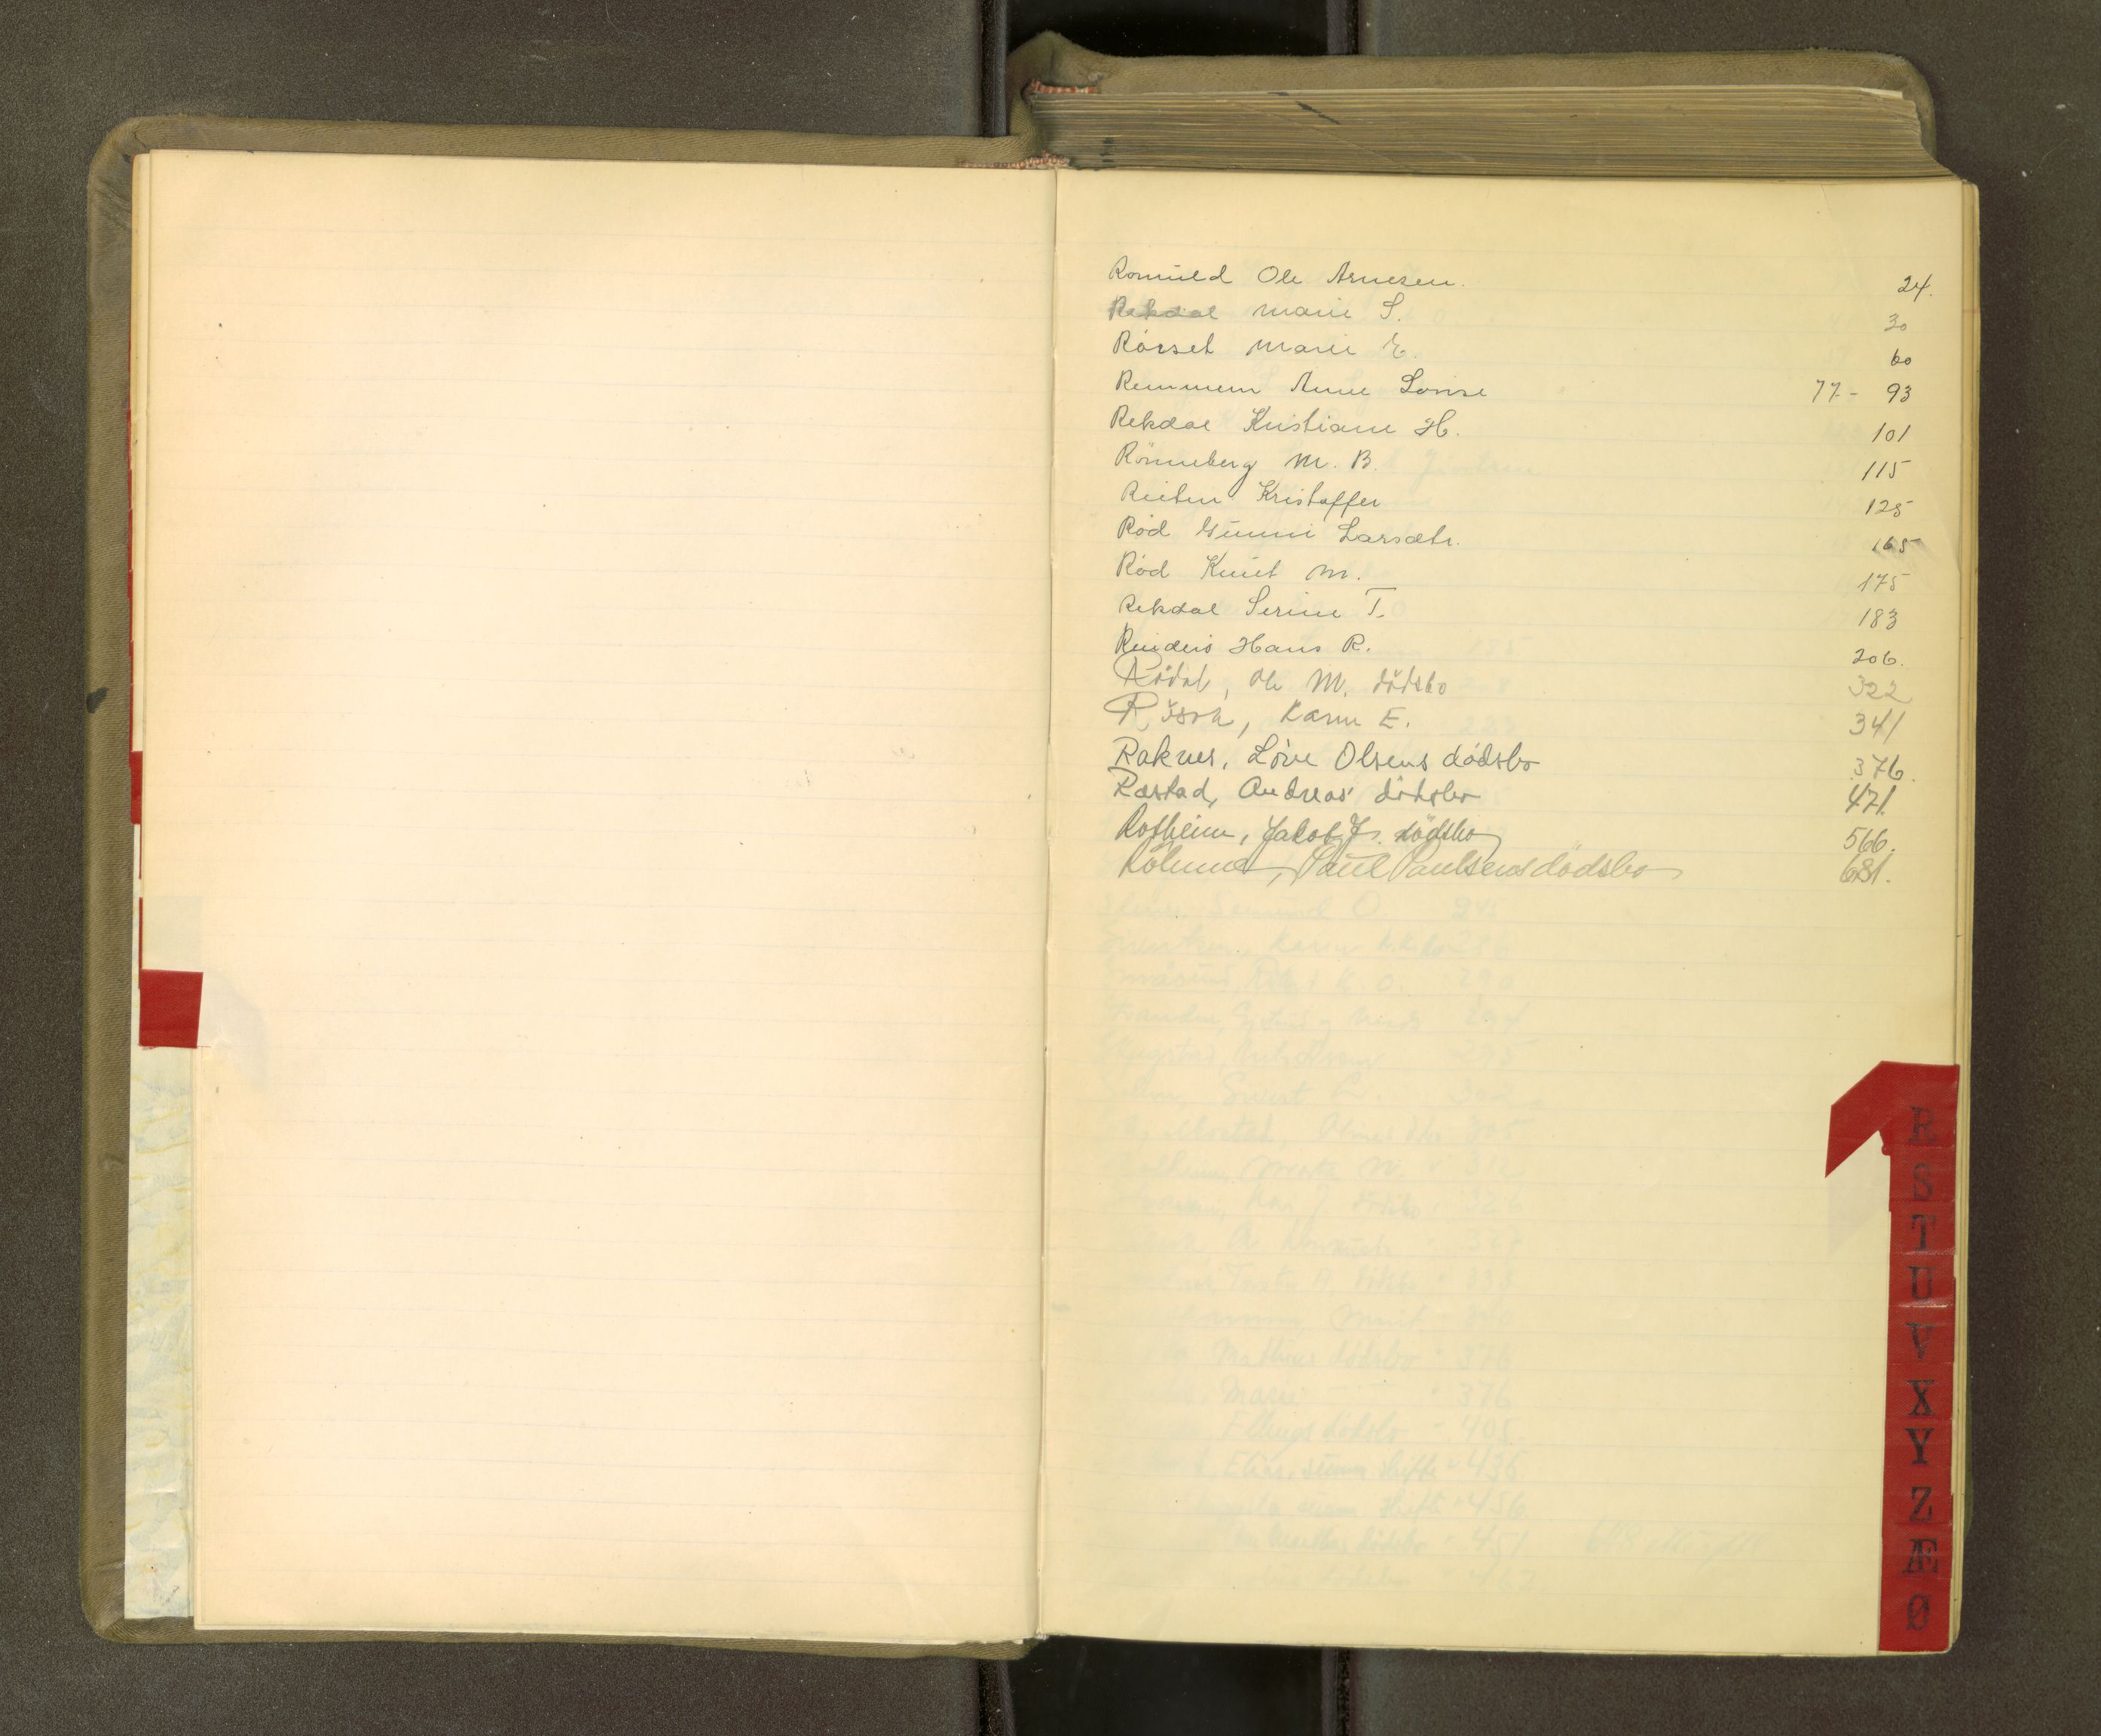 Romuld Ole Arnesen. 24.
Rekdal Marie S. 30
Rørset Marie E. 60
Remmem Anne Lovise 77 - 93
Rekdal Kristiane H. 101
Rönneberg M. B. 115
Reiten Kristoffer 125
Rød Gunni Larsdtr. 165
Rød Knut M. 175
Rekdal Serine T. 183
Reinderö Hans R. 206.
Rödal, Ole M. dödsbo 322
Karen E. 341
Raknes, Löve Olsens dødsbo 376.
Rastad, Andreas' dødsbo 471.
Rotheim, Jakob J's. dödsbo 566.
Paul Paulsens dödsbo 681.
R
S
T
U
V
X
Y
Z
Æ
Ø